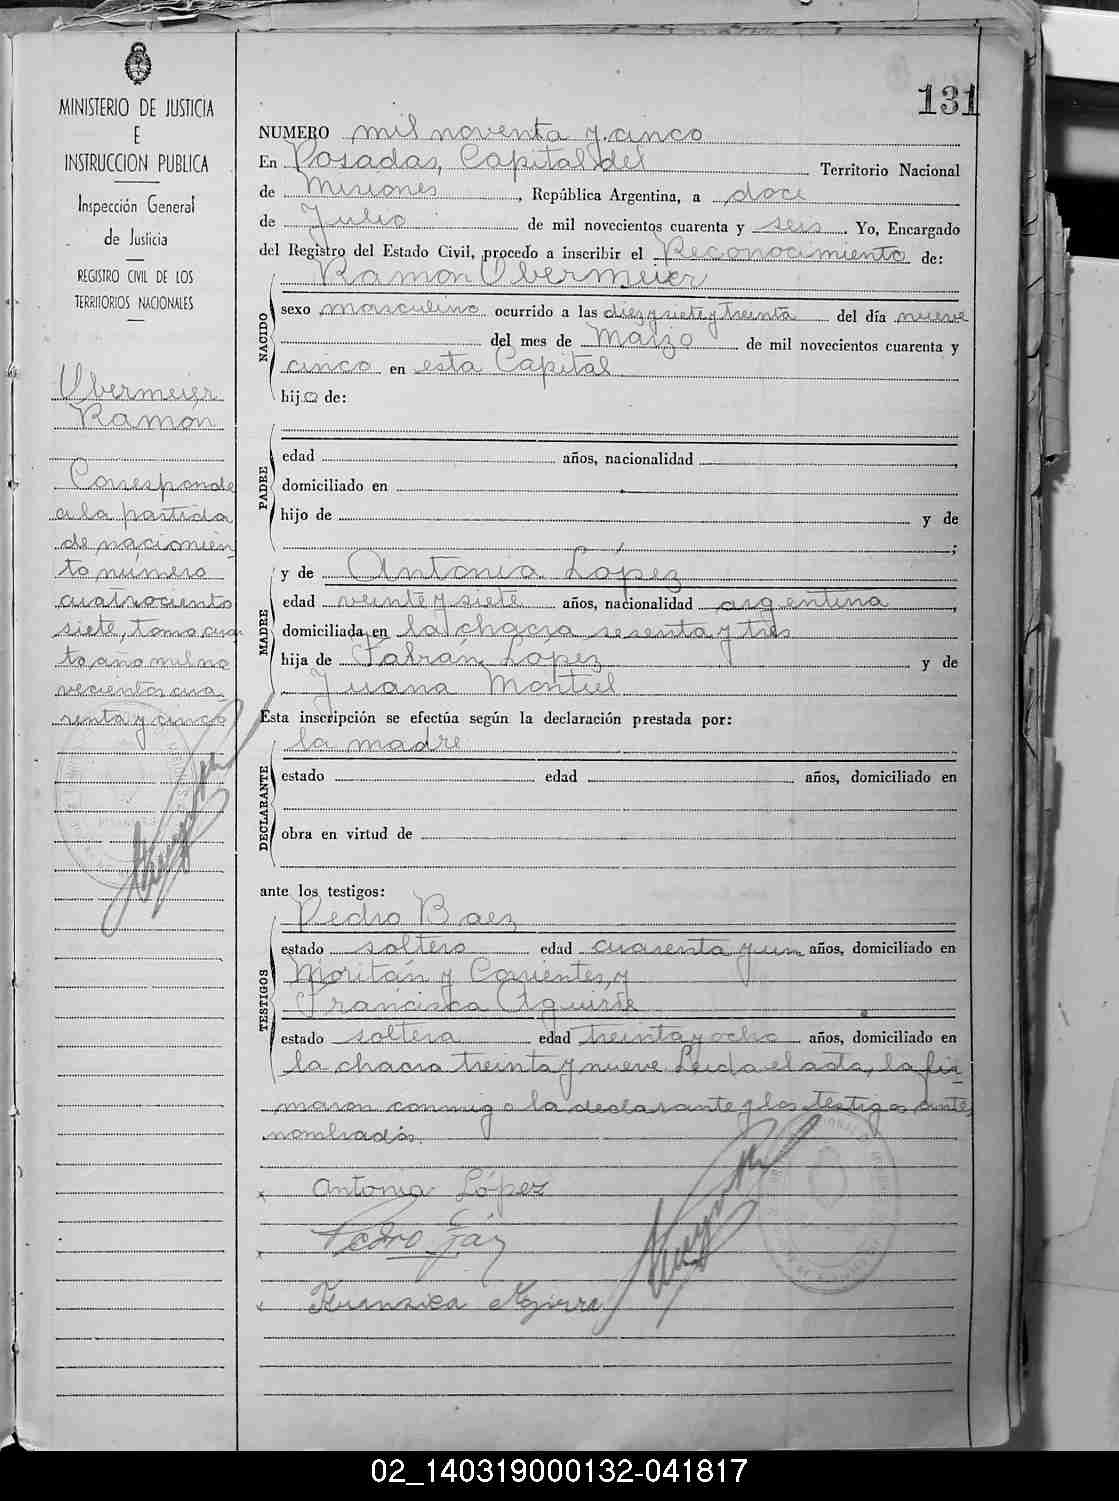 131
MINISTERIO DE JUSTICIA
E
INSTRUCCION PUBLICA
Inspección General
de Justicia
REGISTRO CIVIL DE LOS
TERRITORIOS NACIONALES
Obermeier
Ramón
Corresponde
a la partida
de nacimien
to número
cuatrociento
siete, tomo cua
to año mil no
vecientos cua
renta y cinco
NUMERO mil noventa y cinco
En Posadas, Capital del Territorio Nacional
de Misiones, República Argentina, a doce
de Julio de mil novecientos cuarenta y seis. Yo, Encargado
del Registro del Estado Civil, procedo a inscribir el Reconocimiento de:
Ramón Obermeier
NACIDO
sexo masculino ocurrido a las diez y siete y treinta del día nueve
del mes de Marzo de mil novecientos cuarenta y
cinco en esta Capital
hijo de:
PADRE
edad años, nacionalidad
domiciliado en
hijo de y de
;
MADRE
y de Antonia López
edad veinte y siete años, nacionalidad argentina,
domiciliada en la chacra sesenta y tres
hija de Fabián López y de
Juana Montiel
Esta inscripción se efectúa según la declaración prestada por:
la madre
DECLARANTE
estado edad años, domiciliado en
obra en virtud de
ante los testigos:
TESTIGOS
Pedro Baez
estado soltero edad cuarenta y un años, domiciliado en
Moritán y Corrientes, y
Francisca Aguirre
estado soltera edad treinta y ocho años, domiciliado en
la chacra treinta y nueve. Leída el acta, la fir
maron conmigo la declarante y los testigos ante
nombrados.
Antonia López
Pedro
02_140319000132-041817